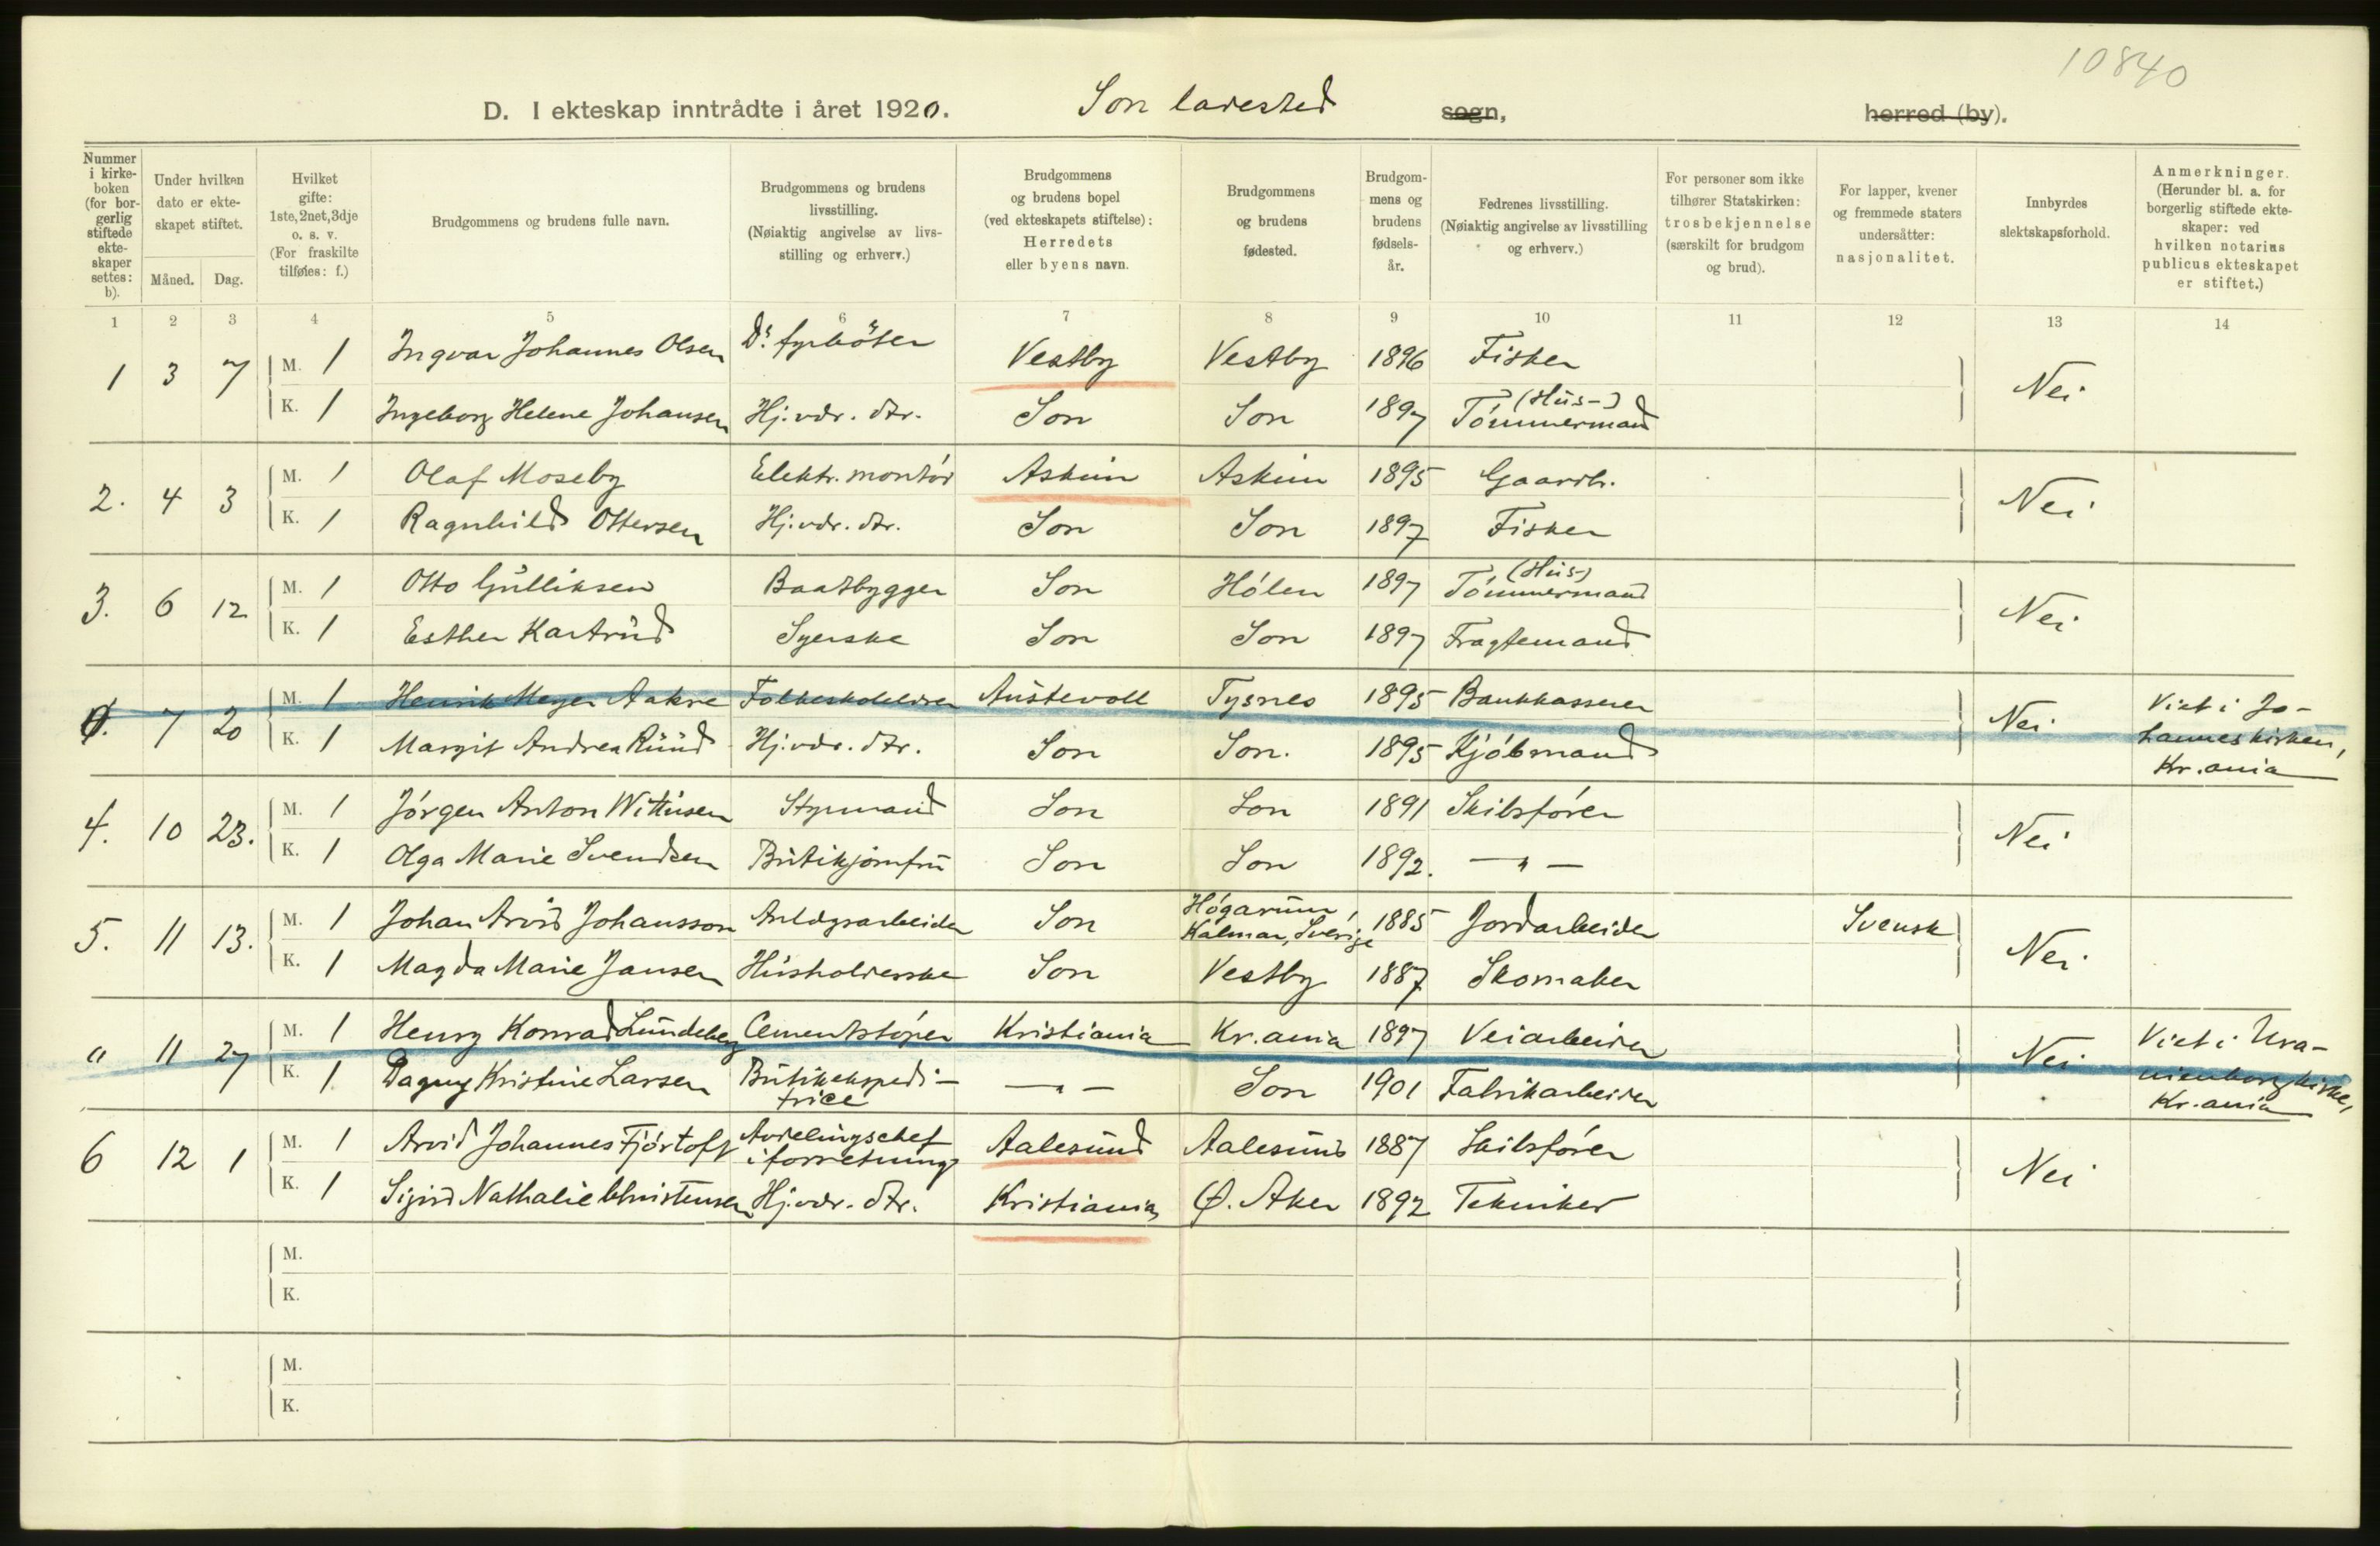 10840
D. I ekteskap inntrådte i året 1920. Son ladested sogn, herred (by).
Nummer i kirkeboken (for borgerlig stiftede ekteskaper settes: b).
Under hvilken dato er ekteskapet stiftet.
Måned. Dag.
Hvilket gifte: 1ste, 2net, 3dje o. s. v. (For fraskilte tilføies: f.)
Brudgommens og brudens fulle navn.
Brudgommens og brudens livsstilling. (Nøiaktig angivelse av livsstilling og erhverv.)
Brudgommens og brudens bopel (ved ekteskapets stiftelse): Herredets eller byens navn.
Brudgommens og brudens fødested.
Brudgommens og brudens fødselsår.
Fedrenes livsstilling. (Nøiaktig angivelse av livsstilling og erhverv.)
For personer som ikke tilhører Statskirken: trosbekjennelse (særskilt for brudgom og brud).
For lapper, kvener og fremmede staters undersåtter: nasjonalitet.
Innbyrdes slektskapsforhold.
Anmerkninger. (Herunder bl. a. for borgerlig stiftede ekteskaper: ved hvilken notarius publicus ekteskapet er stiftet.)
1 2 3 4 5 6 7 8 9 10 11 12 13 14
1 3 7 M. 1 Ingvar Johannes Olsen Ds. fyrbøter Vestby Vestby 1896 Fisker Nei
K. 1 Ingeborg Helene Johansen Hj.vdr. dtr. Son Son 1897 (Hus-) Tømmermand
2. 4 3 M. 1 Olaf Moseby Elektr. montør Askim Askim 1895 Gaardb. Nei
K. 1 Ragnhild Ottersen Hj.vdr. dtr. Son Son 1897 Fisker
3. 6 12 M. 1 Otto Gulliksen Baatbygger Son Hølen 1897 (Hus-) Tømmermand Nei
K. 1 Esther Kastrud Syerske Son Son 1897 Fragtemand
7 20 M. 1 Henrik Meyer Aakre Folkeskolelærer Austevoll Tysnes 1895 Bankkasserer Nei Viet i Johanneskirken, Kr.ania
K. 1 Margit Andrea Ruud Hj.vdr. dtr. Son Son. 1895 Kjøbmand
4. 10 23. M. 1 Jørgen Anton Wittusen Styrmand Son Son 1891 Skibsfører Nei
K. 1 Olga Marie Svendsen Butikjomfru Son Son 1892. — " —
5. 11 13. M. 1 Johan Arvid Johansson Anlægsarbeider Son Högarum, Kalmar, Sverige 1885 Jordarbeider Svensk Nei
K. 1 Magda Marie Jansen Husholderske Son Vestby 1887 Skomaker
" 11 27 M. 1 Henry Konrad Lundeberg Cementstøper Kristiania Kr.ania 1897 Veiarbeider Nei Viet i Uranienborg kirke, Kr.ania
K. 1. Dagny Kristine Larsen Butikekspeditrice — " — Son 1901 Fabrikarbeider
6 12 1 M. 1 Arvid Johannes Fjørtoft Avdelingschef i forretning Aalesund Aalesund 1887 Skibsfører Nei
K. 1 Sigrid Nathalie Christensen Hj.vdr. dtr. Kristiania Ø. Aker 1892 Tekniker
M.
K.
M.
K.